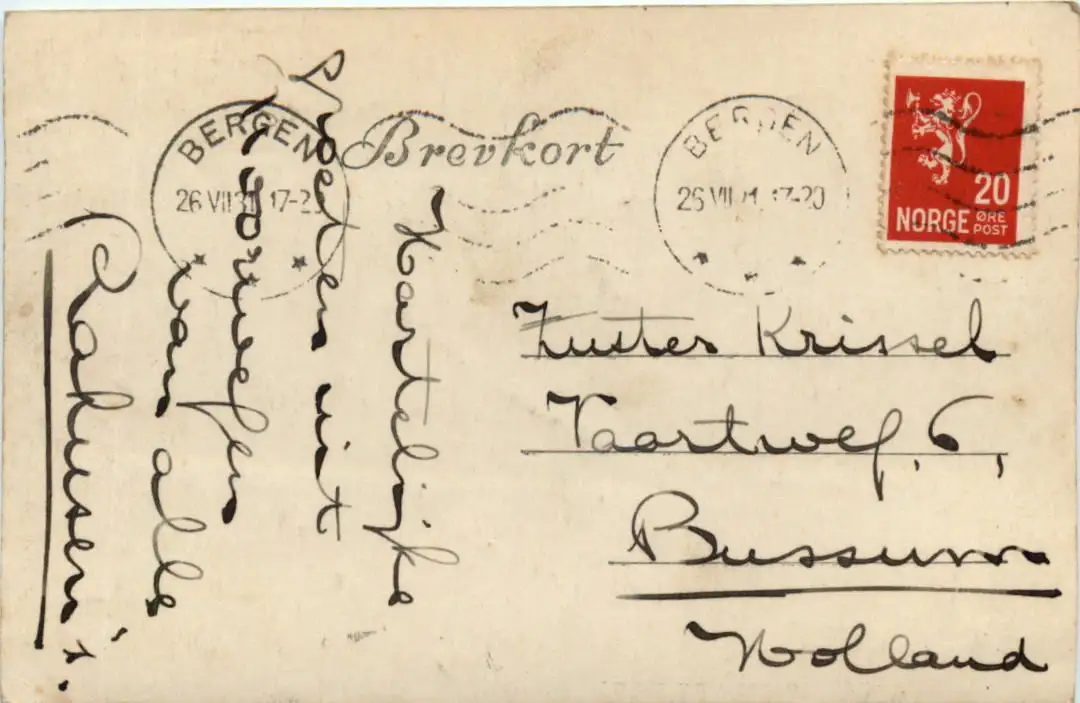 Brevkort
BERGEN
26 VII 31 17-20
BERGEN
26 VII 17-20
20
NORGE ØRE
POST
Hartelijke
groeten uit
Noorwegen
van alle
Rahusen's.
Zuster Krissel
Vaartweg, 6,
Bussum
Holland